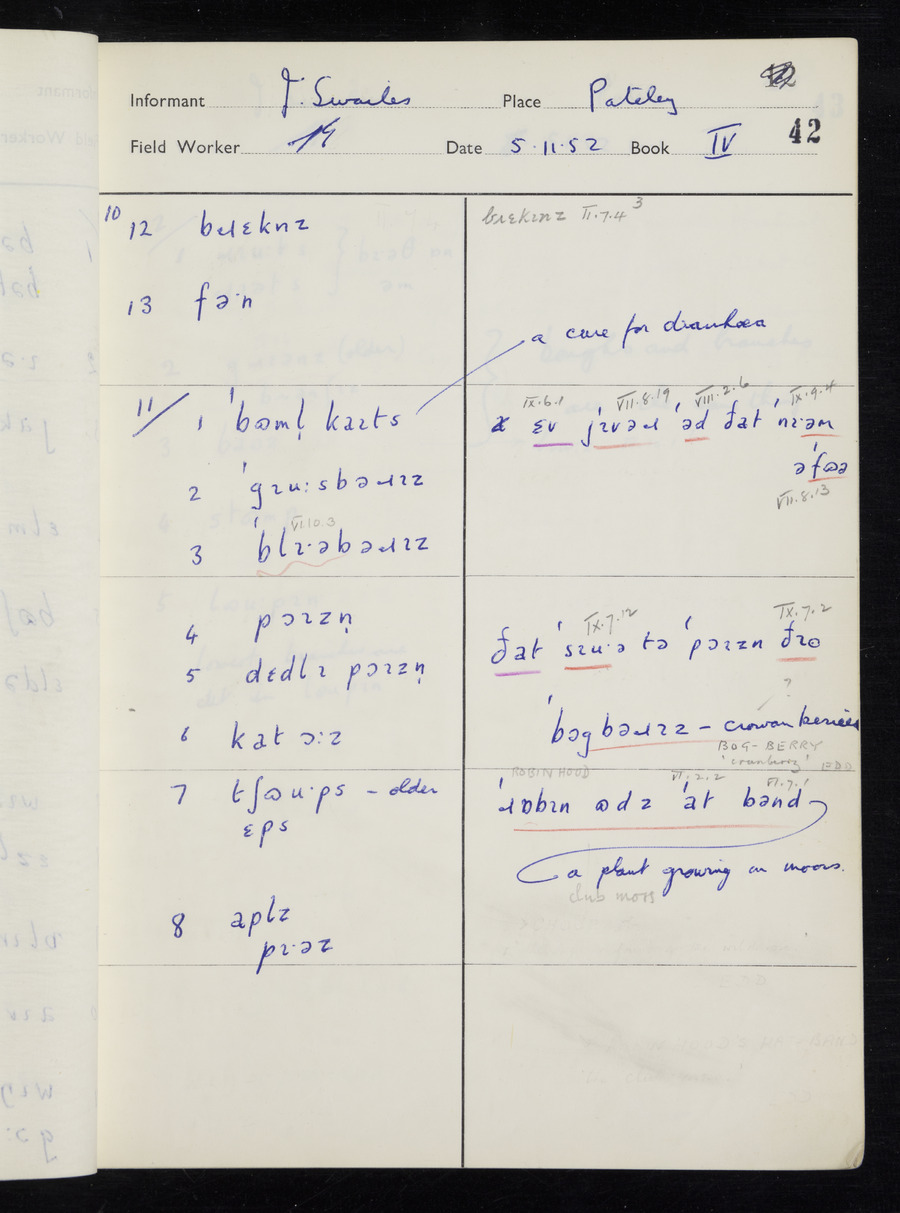 Informant J. Swailes Place Pateley
42
Field Worker Date 5.11.52 Book IV
10 12 bɹɛknz
brɛkɪnz II.7.4 3
13 fəˑn
a cure for diarrhœa
11/ 1 ˈbəml̩ kaɪts
IX.6.1 VII.8.19 VIII.2.6 IX.9.4
ɛv jɪvəɹ ˈəd ðat ˈnɪəm
əˈfɷə
VII.8.13
2 ˈgɪuːsbəɹɪz
VI.10.3
3 ˈblɪˑəbəɹɪz
4 pɔɪzn̩
IX.7.12 IX.7.2
ðat ˈsɪuˑə tə ˈpɔɪzn ðɪə
5 dɛdlɪ pɔɪzn̩
?
6 kat ɔːz
ˈbɔgbəɹɪz – crowan berries
BOG-BERRY
'cranberry' EDD
ROBIN HOOD VI.2.2 VI.7.1
7 tʃɷuˑps – older
ɛps
ˈɹɒbɪn ɷdz ˈat bənd
a plant growing on moors.
club moss
8 aplz
pɪˑəz